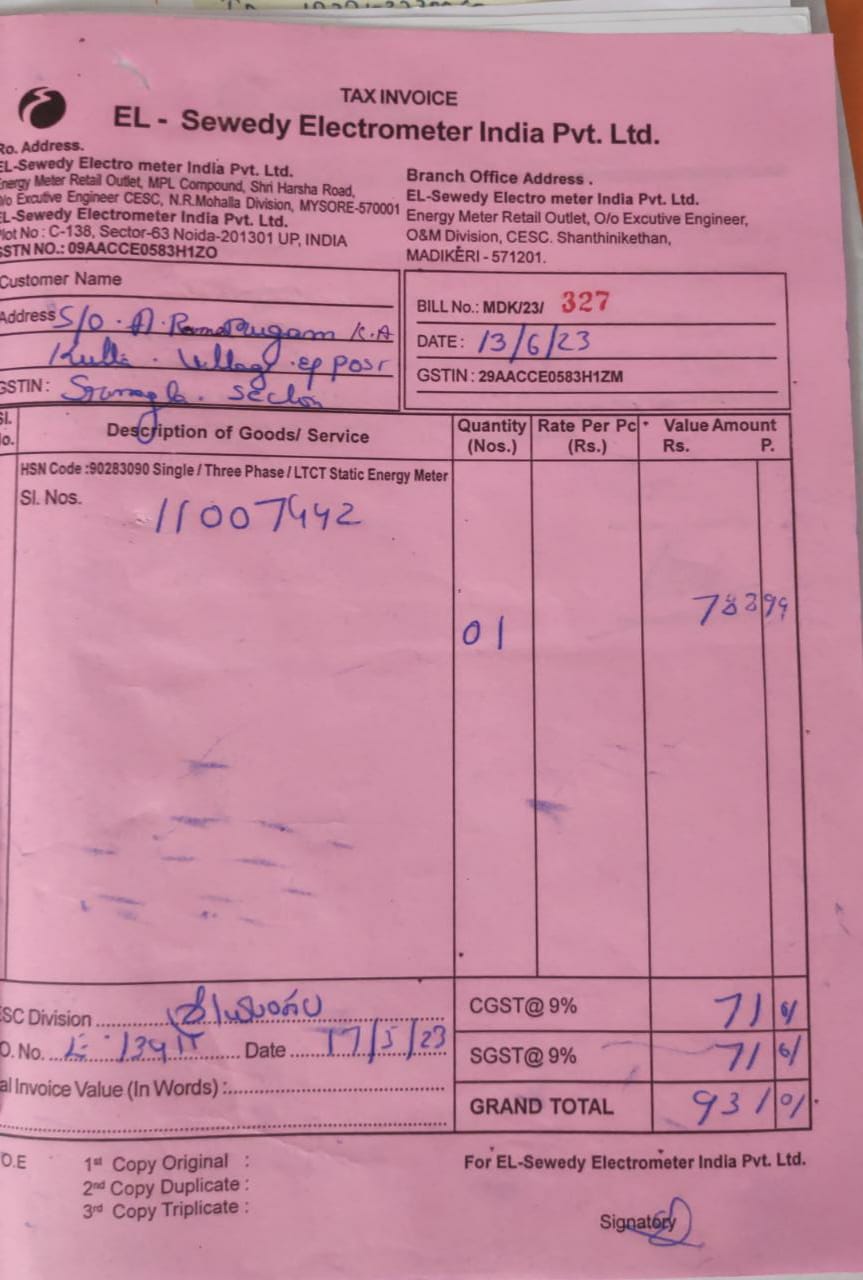 TAX INVOICE
EL - Sewedy Electrometer India Pvt. Ltd.
Ro. Address.
EL-Sewedy Electro meter India Pvt. Ltd.
Energy Meter Retail Outlet, MPL Compound, Shri Harsha Road,
O/o Excutive Engineer CESC, N.R.Mohalla Division, MYSORE-570001
EL-Sewedy Electrometer India Pvt. Ltd.
Plot No : C-138, Sector-63 Noida-201301 UP, INDIA
GSTN NO.: 09AACCE0583H1ZO
Branch Office Address .
EL-Sewedy Electro meter India Pvt. Ltd.
Energy Meter Retail Outlet, O/o Excutive Engineer,
O&M Division, CESC. Shanthinikethan,
MADIKERI - 571201.
Customer Name
Address S/O . A. K.A
Village post
GSTIN : Section
BILL No.: MDK/23/ 327
DATE : 13/6/23
GSTIN : 29AACCE0583H1ZM
Sl. No. Description of Goods/ Service Quantity (Nos.) Rate Per Pc (Rs.) Value Amount Rs. P.
HSN Code :90283090 Single / Three Phase / LTCT Static Energy Meter
Sl. Nos. 11007442
01 99
SC Division
O. No. Date 17/5/23
al Invoice Value (In Words) :
CGST@ 9% 71
SGST@ 9% 71
GRAND TOTAL 931
O.E 1st Copy Original :
2nd Copy Duplicate :
3rd Copy Triplicate :
For EL-Sewedy Electrometer India Pvt. Ltd.
Signatory